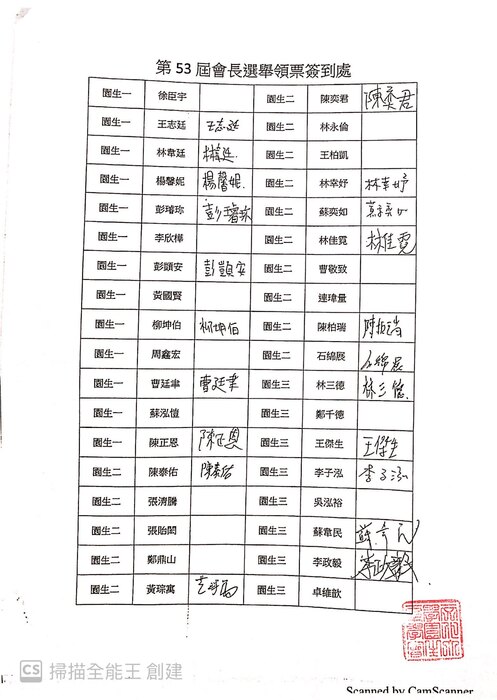 第 53 屆會長選舉領票簽到處
園生一 徐臣宇 園生二 陳奕君 陳奕君
園生一 王志廷 王志廷 園生二 林永倫
園生一 林韋廷 林韋廷 園生二 王柏凱
園生一 楊馨妮 楊馨妮 園生二 林幸妤 林幸妤
園生一 彭璿珎 彭璿珎 園生二 蘇奕如 蘇奕如
園生一 李欣樺 園生二 林佳霓 林佳霓
園生一 彭顗安 彭顗安 園生二 曹敬致
園生一 黃國賢 園生二 連瑋量
園生一 柳坤伯 柳坤伯 園生二 陳柏瑞 陳柏瑞
園生一 周鑫宏 園生二 石綿展 石綿展
園生一 曹廷聿 曹廷聿 園生三 林三德 林三德
園生一 蘇泓愷 園生三 鄭千德
園生一 陳正恩 陳正恩 園生三 王傑生 王傑生
園生二 陳泰佑 陳泰佑 園生三 李子泓 李子泓
園生二 張清騰 園生三 吳泓裕
園生二 張貽閎 園生三 蘇韋民
園生二 鄭鼎山 園生三 李政毅 李政毅
園生二 黃琮寓 園生三 卓維歆
CS 掃描全能王 創建
Scanned by CamScanner